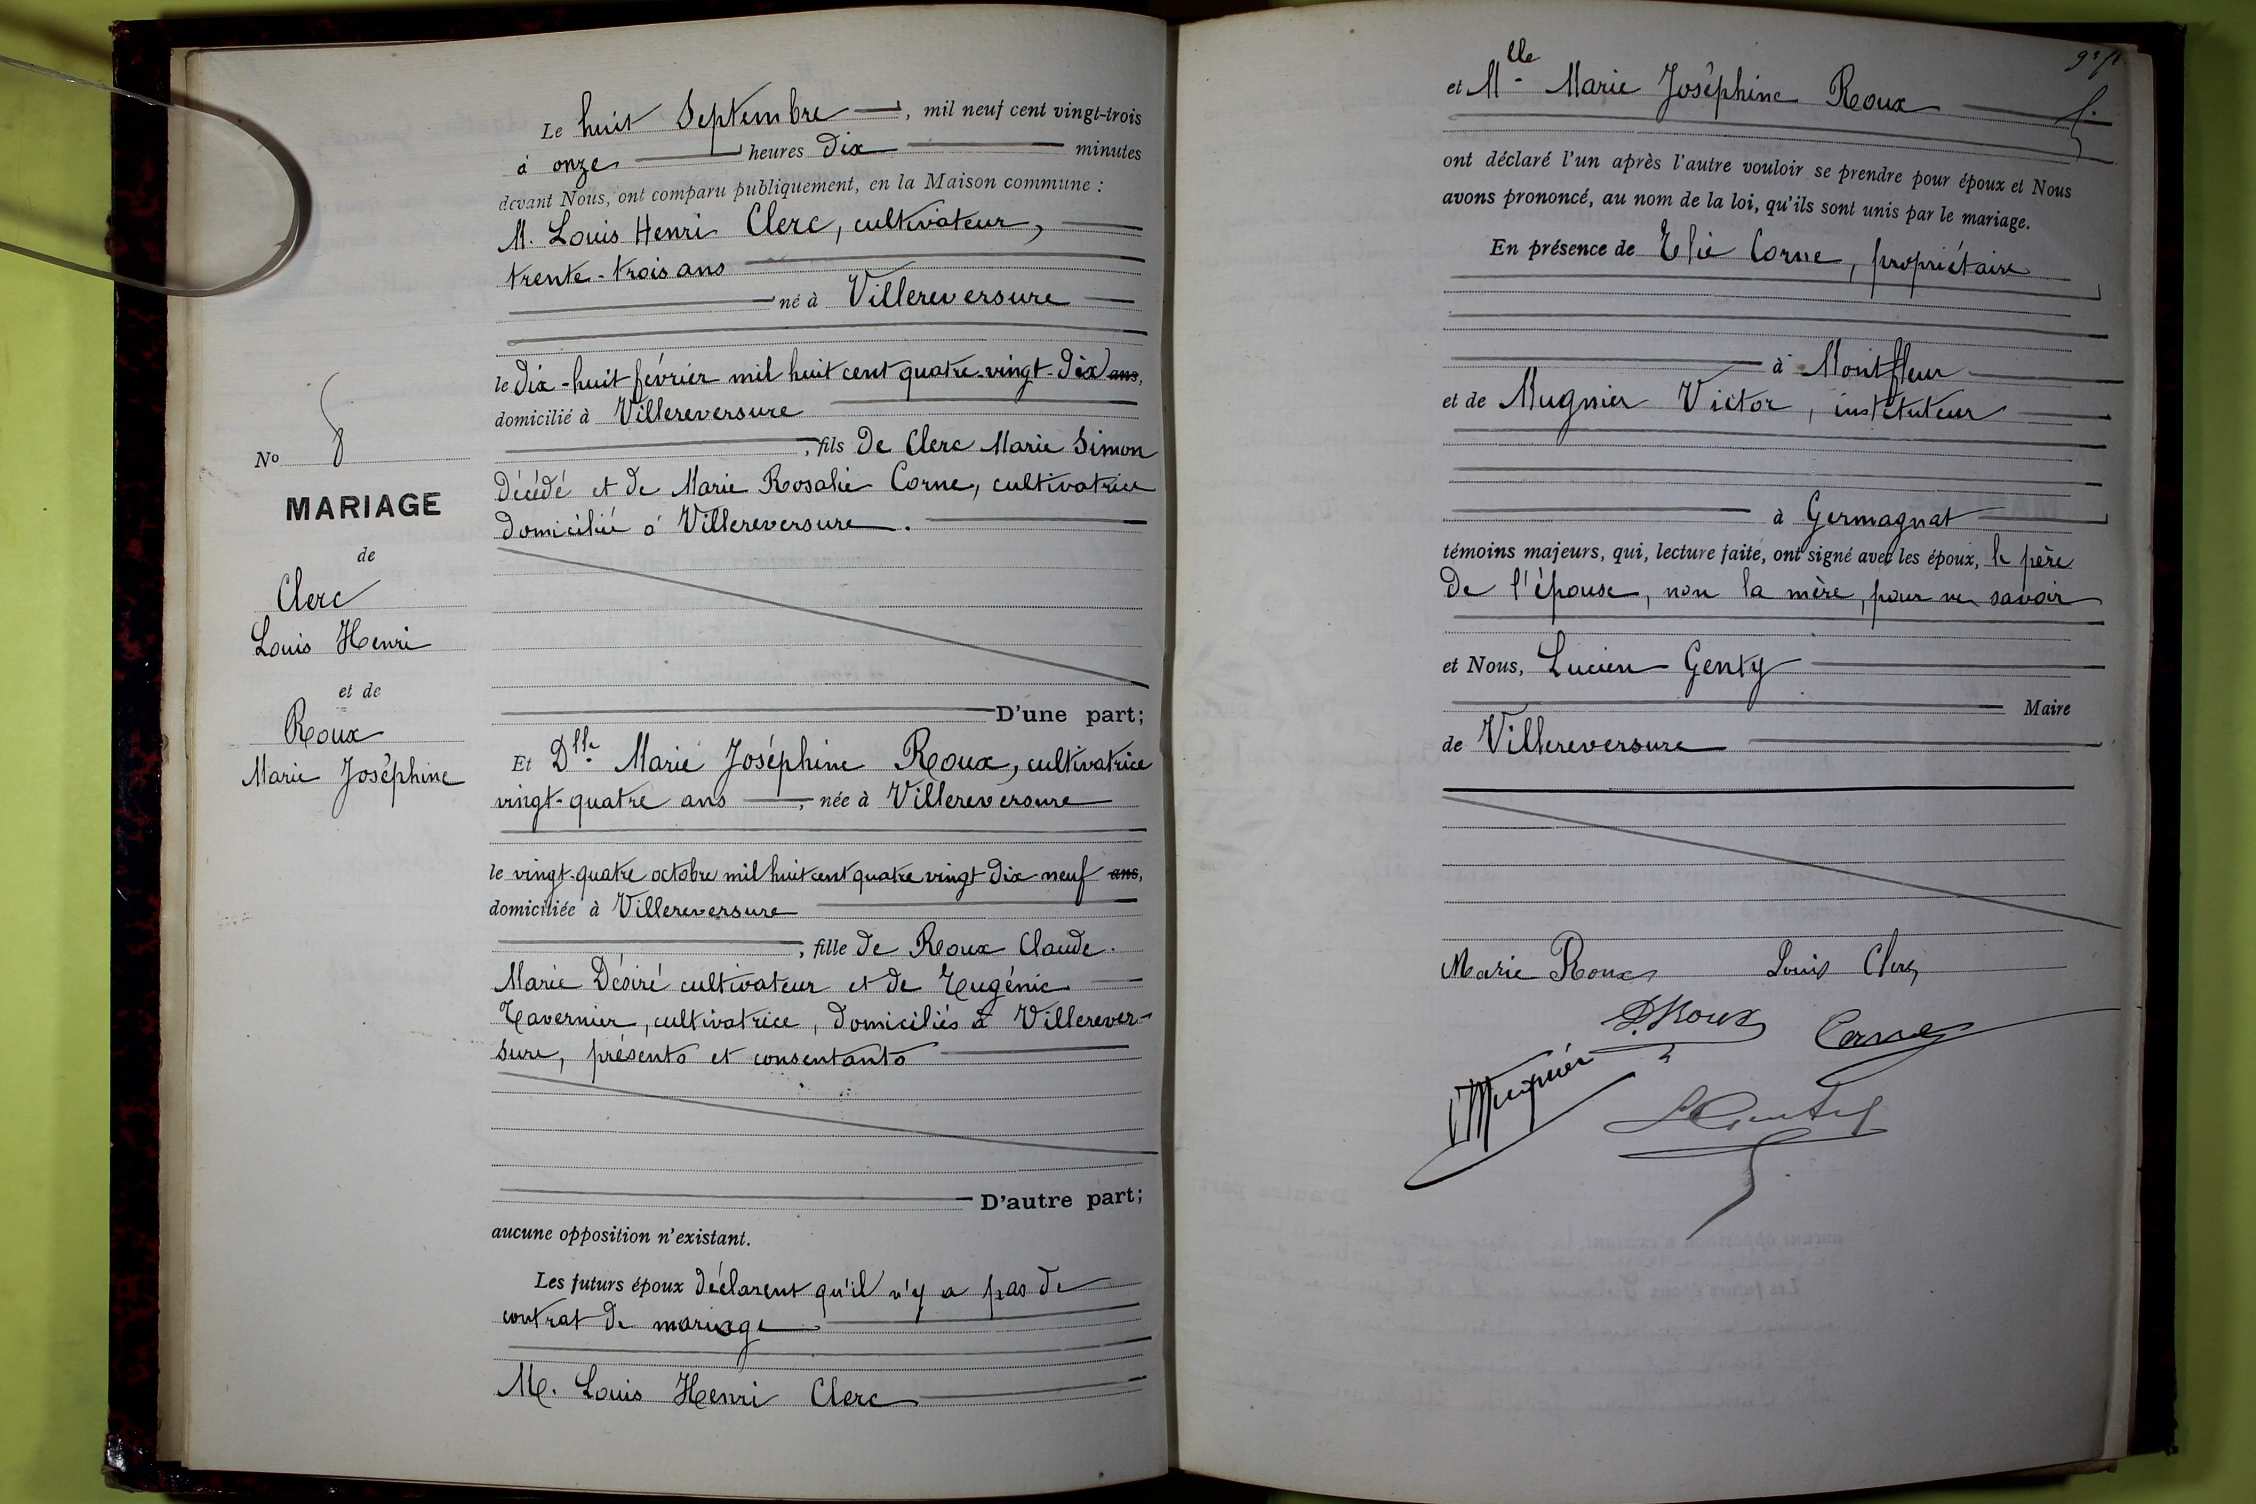 Le huit Septembre, mil neuf cent vingt-trois
à onze heures dix minutes
devant Nous, ont comparu publiquement, en la Maison commune :
M. Louis Henri Clerc, cultivateur,
trente-trois ans
né à Villereversure
le dix-huit février mil huit cent quatre-vingt-dix ans,
domicilié à Villereversure
, fils de Clerc Marie Simon
décédé et de Marie Rosalie Corne, cultivatrice
domiciliée à Villereversure.
No 8
MARIAGE
de
Clerc
Louis Henri
et de
Roux
Marie Joséphine
D'une part;
Et Dlle Marie Joséphine Roux, cultivatrice
vingt-quatre ans, née à Villereversure
le vingt-quatre octobre mil huit cent quatre vingt dix-neuf ans,
domiciliée à Villereversure
, fille de Roux Claude
Marie Désiré cultivateur et de Eugénie
Tavernier, cultivatrice, domiciliés à Villerever-
sure, présents et consentants
D'autre part;
aucune opposition n'existant.
Les futurs époux déclarent qu'il n'y a pas de
contrat de mariage
M. Louis Henri Clerc
et Mlle Marie Joséphine Roux
ont déclaré l'un après l'autre vouloir se prendre pour époux et Nous
avons prononcé, au nom de la loi, qu'ils sont unis par le mariage.
En présence de Elie Corne, propriétaire
à Montfleur
et de Mugnier Victor, instituteur
à Germagnat
témoins majeurs, qui, lecture faite, ont signé avec les époux, le père
de l'épouse, non la mère, pour ne savoir
et Nous, Lucien Genty
Maire
de Villereversure
Marie Roux Louis Clerc
D. Roux Corne
V Mugnier
L Genty